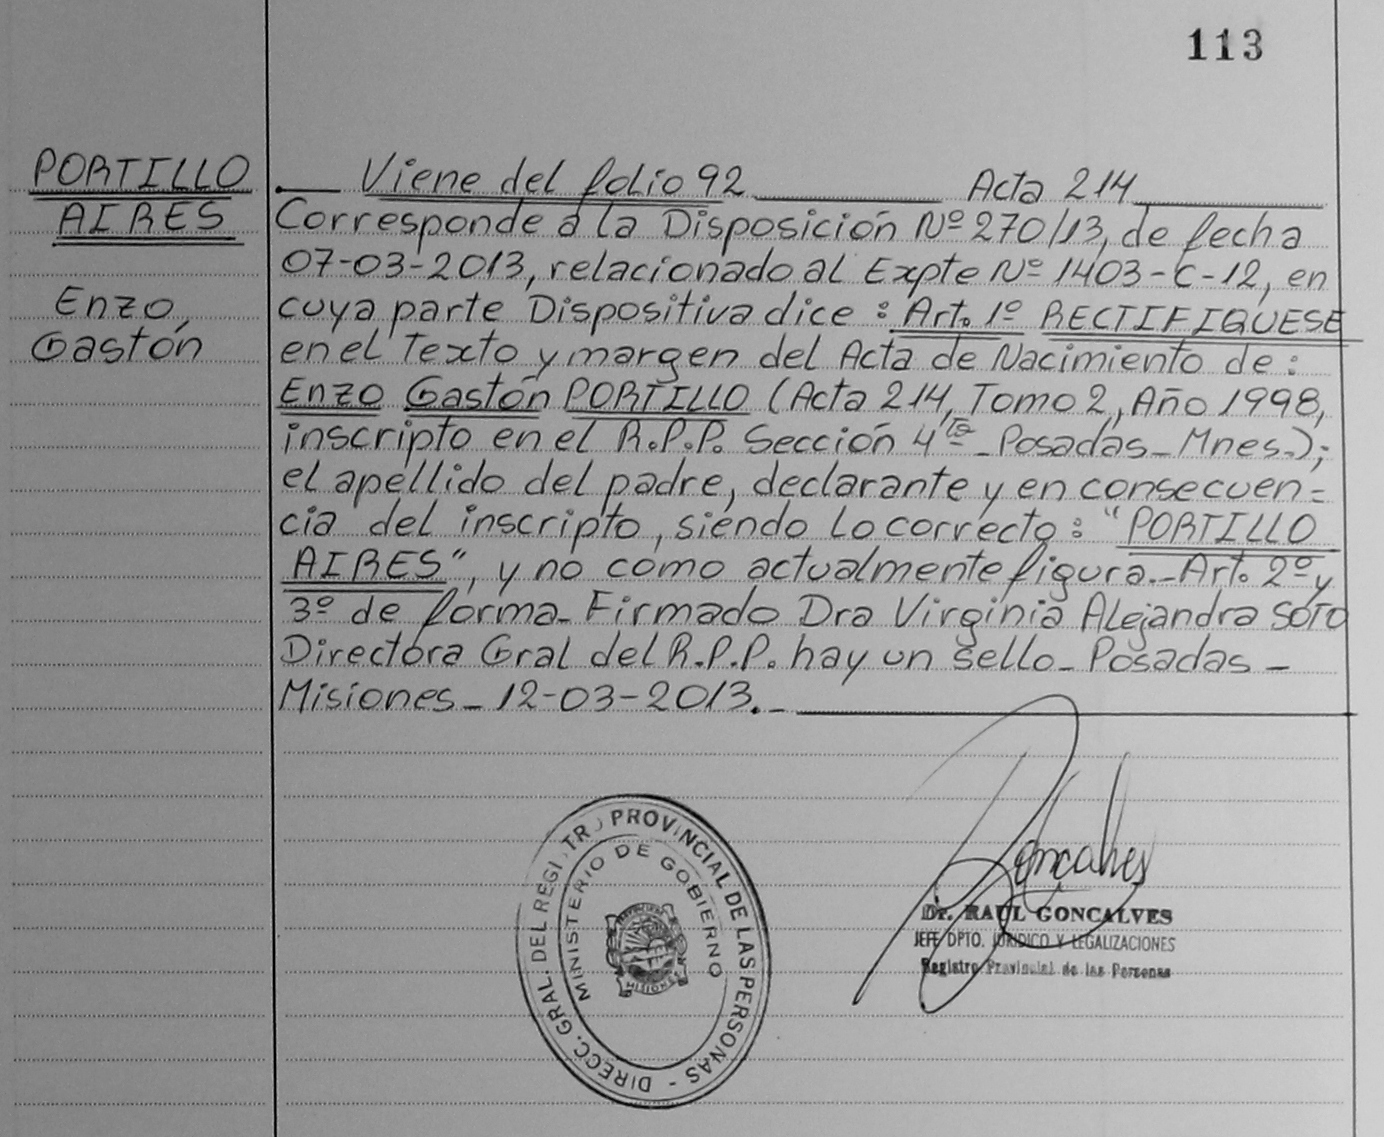 113
PORTILLO
AIRES
Enzo,
Gastón
Viene del folio 92 Acta 214
Corresponde a la Disposición Nº 270/13, de fecha
07-03-2013, relacionado al Expte Nº 1403-C-12, en
cuya parte Dispositiva dice : Art. 1º RECTIFIQUESE
en el Texto y margen del Acta de Nacimiento de :
Enzo Gastón PORTILLO (Acta 214, Tomo 2, Año 1998,
inscripto en el R.P.P. Sección 4ta - Posadas - Mnes.);
el apellido del padre, declarante y en consecuen=
cia del inscripto, siendo lo correcto : "PORTILLO
AIRES", y no como actualmente figura.- Art. 2º y
3º de forma- Firmado Dra Virginia Alejandra SOTO
Directora Gral del R.P.P. hay un sello - Posadas -
Misiones - 12-03-2013.-
DIRECC. GRAL. DEL REGISTRO PROVINCIAL DE LAS PERSONAS -
MINISTERIO DE GOBIERNO
MISIONES
Goncalves
Dr. RAUL GONCALVES
JEFE DPTO. JURIDICO Y LEGALIZACIONES
Registro Provincial de las Personas